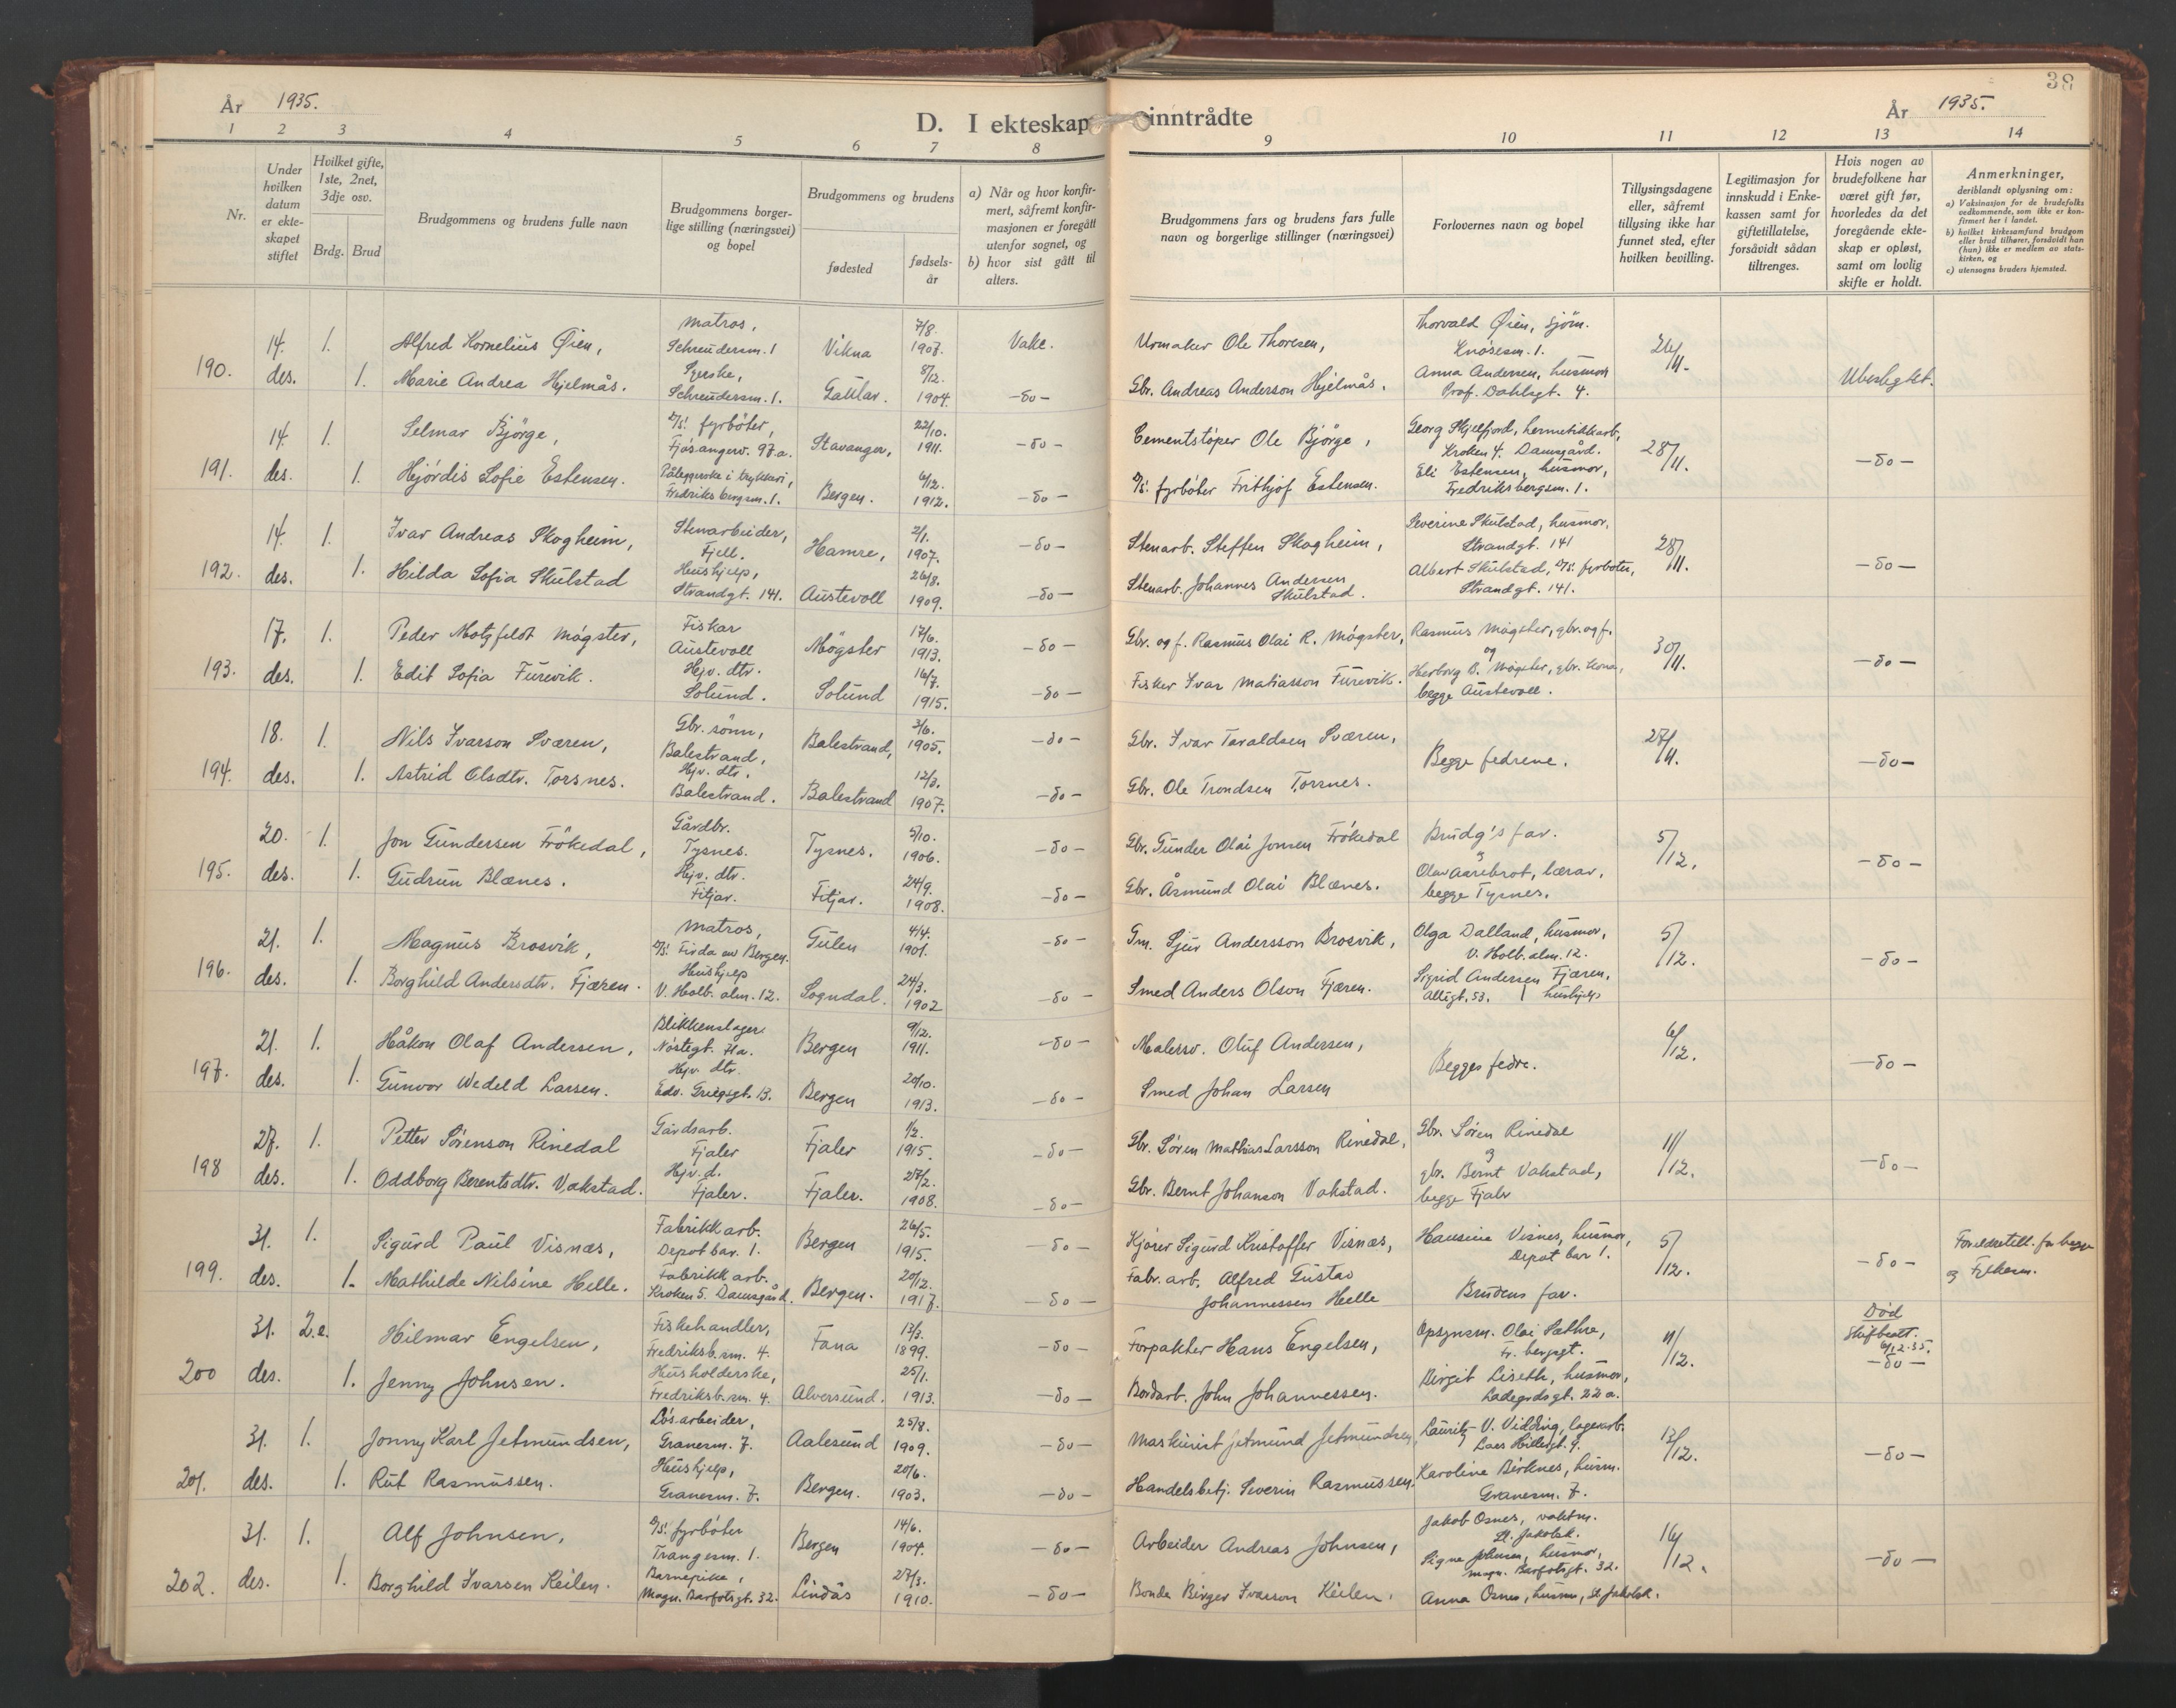 År 1935.
D. I ekteskap inntrådte
38
År 1935.
1 2 3 4 5 6 7 8 9 10 11 12 13 14
Nr.
Under hvilken datum er ekteskapet stiftet
Hvilket gifte, 1ste, 2net, 3dje osv.
Brdg. Brud
Brudgommens og brudens fulle navn
Brudgommens borgerlige stilling (næringsvei) og bopel
Brudgommens og brudens
fødested
fødselsår
a) Når og hvor konfirmert, såfremt konfirmasjonen er foregått utenfor sognet, og
b) hvor sist gått til alters.
Brudgommens fars og brudens fars fulle navn og borgerlige stillinger (næringsvei)
Forlovernes navn og bopel
Tillysingsdagene eller, såfremt tillysing ikke har funnet sted, efter hvilken bevilling.
Legitimasjon for innskudd i Enkekassen samt for giftetillatelse, forsåvidt sådan tiltrenges.
Hvis nogen av brudefolkene har været gift før, hvorledes da det foregående ekteskap er opløst, samt om lovlig skifte er holdt.
Anmerkninger,
deriblandt oplysning om:
a) Vaksinasjon for de brudefolks vedkommende, som ikke er konfirmert her i landet.
b) hvilket kirkesamfund brudgom eller brud tilhører, forsåvidt han (hun) ikke er medlem av statskirken, og
c) utensogns bruders hjemsted.
190. 14. des. 1. Alfred Kornelius Øien, Matros, Schreudersm. 1 Vikna 7/8. 1907. Vake. Urmaker Ole Thoresen, Thorvald Øien, sjøm. Knøsesm. 1. 26/11. Ubeslegtet.
1. Marie Andrea Hjelmås. Syerske, Schreudersm. 1. Gaular. 8/12. 1904. -do- Gbr. Andreas Anderson Hjelmås. Anna Andersen, husmor Prof. Dahlsgt. 4.
191. 14. des. 1. Selmar Bjørge, D/S. fyrbøter, Fjøsangerv. 97a. Stavanger, 22/10. 1911. -do- Cementstøper Ole Bjørge, Georg Skjelfjord, hermetikkarb, Kroken 4. Damsgård. 28/11. -do-
1. Hjørdis Sofie Estensen. Påleggerske i trykkeri, Fredriksbergsm. 1. Bergen. 6/12. 1912. -do- D/S. fyrbøter Frithjof Estensen. Eli Estensen, husmor, Fredriksbergsm. 1.
192. 14. des. 1. Ivar Andreas Skogheim, Stenarbeider, Fjell. Hamre, 2/1. 1907. -do- Stenarb. Steffen Skogheim, Severine Skulstad, husmor, Strandgt. 141 28/11. -do-
1. Hilda Sofia Skulstad Hushjelp, Strandgt. 141. Austevoll 26/8. 1909. -do- Stenarb. Johannes Andersen Skulstad. Albert Skulstad, D/S. fyrbøter, Strandgt. 141.
193. 17. des. 1. Peder Motzfeldt Møgster, Fiskar Austevoll Møgster 17/6. 1913. -do- Gbr. og f. Rasmus Olai R. Møgster, Rasmus Møgster, gbr. og f. og 30/11. -do-
1. Edit Sofia Furevik. Hjv. dtr. Solund. Solund 16/7. 1915. -do- Fisker Ivar Matiasson Furevik. Herborg B. Møgster, gbr. kona, begge Austevoll.
194. 18. des. 1. Nils Ivarson Sværen, Gbr. sønn, Balestrand, Balestrand, 3/6. 1905. -do- Gbr. Ivar Taraldsen Sværen, Begge fedrene. 27/11. -do-
1. Astrid Olsdtr. Torsnes. Hjv. dtr. Balestrand. Balestrand 12/3. 1907. -do- Gbr. Ole Trondsen Torsnes.
195. 20. des. 1. Jon Gundersen Frøkedal, Gårdbr. Tysnes. Tysnes. 5/10. 1906. -do- Gbr. Gunder Olai Jonsen Frøkedal Brudg's far. og 5/12. -do-
1. Gudrun Blænes. Hjv. dtr. Fitjar. Fitjar. 24/9. 1908. -do- Gbr. Åsmund Olai Blænes. Olav Aarebrot, lærar, begge Tysnes.
196. 21. des. 1. Magnus Brosvik, Matros, D/S. Firda av Bergen. Gulen 4/4. 1901. -do- Gm. Sjur Andersson Brosvik, Olga Dalland, husmor, V. Holb. alm. 12. 5/12. -do-
1. Borghild Andersdtr. Fjæren. Hushjelp V. Holb. alm. 12. Sogndal. 24/3. 1902 -do- Smed Anders Olson Fjæren. Sigrid Andersen Fjæren, Allégt. 53. hushjelp
197. 21. des. 1. Håkon Olaf Andersen, Blikkenslager. Nøstegt. 71a. Bergen 9/12. 1911. -do- Malersv. Oluf Andersen, Begges fedre. 6/12. -do-
1. Gunvor Wedeld Larsen. Hjv. dtr. Edv. Griegsgt. 13. Bergen 20/10. 1913. -do- Smed Johan Larsen
198 27. des. 1. Petter Sørenson Rinedal Gårdsarb. Fjaler Fjaler 1/2. 1915. -do- Gbr. Søren Mathias Larsson Rinedal, Gbr. Søren Rinedal og 11/12. -do-
1. Oddborg Berentsdtr. Vakstad. Hjv. d. Fjaler. Fjaler. 27/2. 1908. -do- Gbr. Bernt Johanson Vakstad. gbr. Bernt Vakstad, begge Fjaler
199. 31. des. 1. Sigurd Paul Visnæs, Fabrikkarb. Depot bar. 1. Bergen 26/5. 1915. -do- Kjører Sigurd Kristoffer Visnæs, Hansine Visnes, husmor, Depot bar 1. 5/12. -do- Foreldretill. for begge og Fylkesm.
1. Mathilde Nilsine Helle. Fabrikkarb. Kroken 5. Damsgård. Bergen. 20/12. 1917. -do- Fabr. arb. Alfred Gustav Johannessen Helle Brudens far.
200 31. des. 2.e. Hilmar Engelsen, Fiskehandler, Fredriksb.sm. 4. Fana 13/3. 1899. -do- Forpakter Hans Engelsen, Opsynsm. Olai Sæthre, Fr. bergsgt. 11/12. Død Skifteatt. 6/12.35. -do-
1. Jenny Johnsen. Husholderske, Fredriksb.sm. 4. Alversund. 25/1. 1913. -do- Bordarb. John Johannessen. Birgit Liseth, husmor, Ladegrdsgt. 22a.
201. 31. des. 1. Jonny Karl Jetmundsen, Løsarbeider, Granesm. 7. Aalesund 25/8. 1909. -do- Maskinist Jetmund Jetmundsen, Lauritz V. Vidding, lagerarb. Lars Hillesgt. 9. 13/12. -do-
1. Rut Rasmussen. Hushjelp, Granesm. 7. Bergen. 20/6. 1903. -do- Handelsbetj. Severin Rasmussen. Karoline Birknes, husm. Granesm. 7.
202. 31. des. 1. Alf Johnsen, D/S. fyrbøter Trangesm. 1. Bergen 14/6. 1904. -do- Arbeider Andreas Johnsen, Jakob Osnes, vaktm. St. Jakobsk. 16/12. -do-
1. Borghild Ivarsen Keilen. Barnepike, Magn. Barfotsgt. 32. Lindås 27/3. 1910. -do- Bonde Birger Ivarson Keilen. Signe Johnsen, husmor, Magn. Barfotsgt. 32. Anna Osnes, husm, St. Jakobsk.